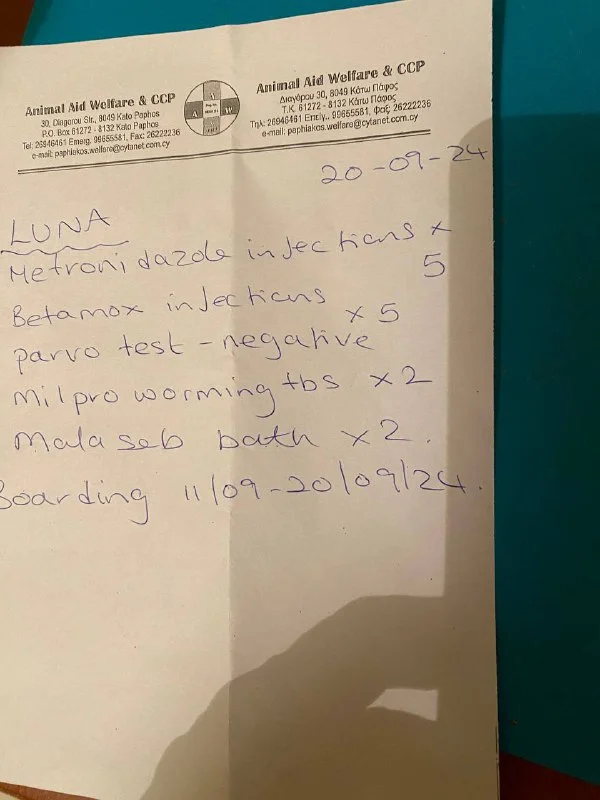 Animal Aid Welfare & CCP
30, Diagorou Str., 8049 Kato Paphos
P.O. Box 61272 - 8132 Kato Paphos
Tel: 26946461 Emerg. 99655581, Fax: 26222236
e-mail: paphiakos.welfare@cytanet.com.cy
A W
Animal Aid Welfare & CCP
Διαγόρου 30, 8049 Κάτω Πάφος
Τ.Κ. 61272 - 8132 Κάτω Πάφος
Τηλ: 26946461 Επείγ.. 99655581, Φαξ: 26222236
e-mail: paphiakos.welfare@cytanet.com.cy
20-09-24
LUNA
Metronidazole injections x
5
Betamox injections x 5
parvo test - negative
Milpro worming tbs x2
Malaseb bath x2.
Boarding 11/09-20/09/24.